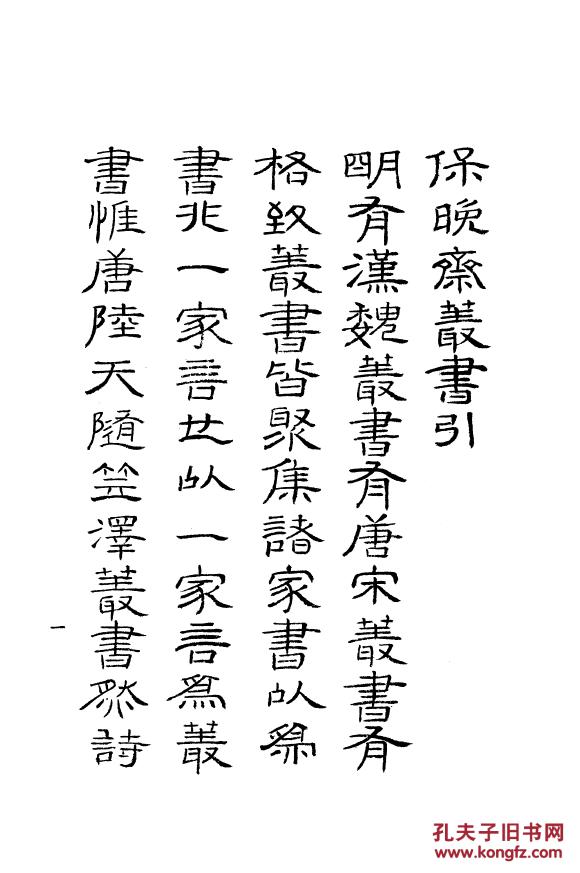 保晚齋叢書引
明有漢魏叢書有唐宋叢書有
格致叢書皆聚集諸家書以爲
書非一家言也以一家言爲叢
書惟唐陸天隨笠澤叢書然詩
一
孔夫子旧书网
www.kongfz.com